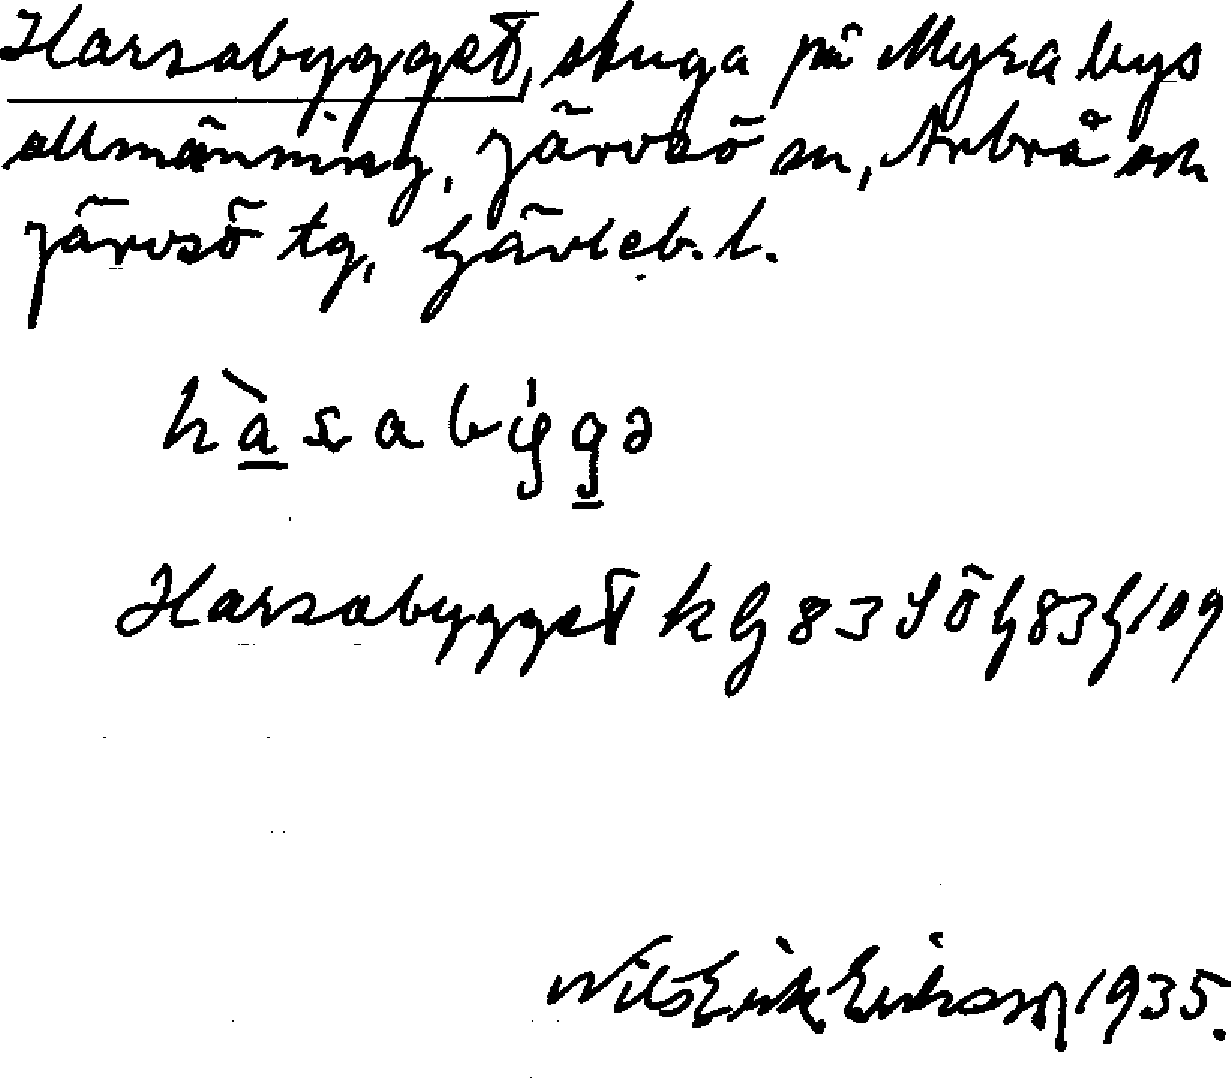 Harsabygget, stuga på Myra bys
allmänning, Järvsö sn, Arbrå och
Järvsö tg, Gävleb. l.
hàsabýggə
Harsabygget k G 83 SÖ G 83 G 109
Nils Erik Eriksson 1935.